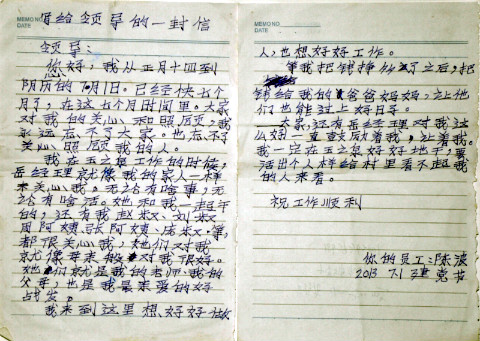 写给领导的一封信
MEMO NO.
DATE
领导:
您好,我从正月十四到
阴历的7月1日。已经快七个
月了,在这七个月时间里。大家
对我的关心和照顾,我
永远忘不了大家。也忘不了
关心照顾我的人。
我在玉之泉工作的时候,
岳经理就像我的家人一样
来关心我,无论有啥事,无
论有啥活。她和我一起干
的,还有我赵叔、刘叔
周阿姨张阿姨、唐叔等,
都很关心我,她们对我
就像母亲的 对我很好。
她们就是我的老师、我的
父母,也是我最亲爱的好
战友。
我来到这里想好好做
MEMO NO.
DATE
人,也想好好工作。
等我把钱挣够了之后,把
钱给我的爸爸妈妈,让他
们也能过上好日子。
大家,还有岳经理对我这
么好一直鼓励着我,让着我。
我一定在玉之泉好好地干,要
活出个人样给村里看不起我
的人来看。
祝工作顺利
你的员工:陈波
2013 7.1 建党节